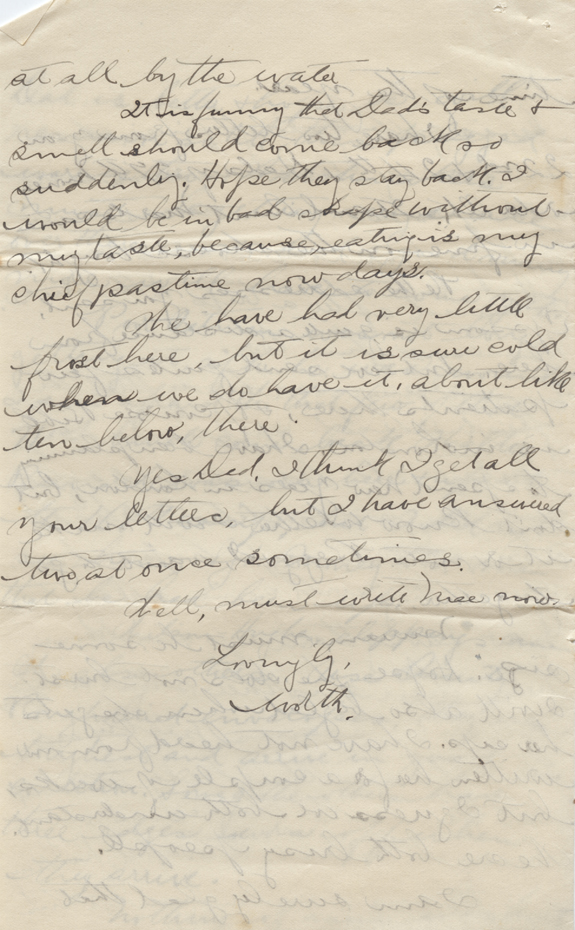 at all by the water
It is funny that Dad's taste &
smell should come back so
suddenly. Hope they stay back. I
would be in bad shape without
my taste, because, eating is my
chief pastime now days.
We have had very little
frost here, but it is sure cold
when we do have it, about like
ten below, there.
Yes Dad, I think I get all
your letters, but I have answered
two at once sometimes.
Well, must write now.
Lovingly,
Worth.